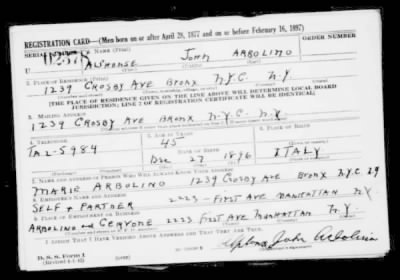 REGISTRATION CARD—(Men born on or after April 28, 1877 and on or before February 16, 1897)
SERIAL NUMBER 1. NAME (Print) ORDER NUMBER
U 2370 ALPHONSE JOHN ARBOLINO
(First) (Middle) (Last)
2. PLACE OF RESIDENCE (Print)
1239 CROSBY AVE BRONX N.Y.C. N.Y.
(Number and street) (Town, township, village, or city) (County) (State)
[THE PLACE OF RESIDENCE GIVEN ON THE LINE ABOVE WILL DETERMINE LOCAL BOARD
JURISDICTION; LINE 2 OF REGISTRATION CERTIFICATE WILL BE IDENTICAL]
3. MAILING ADDRESS
1239 CROSBY AVE BRONX N.Y.C. N.Y.
4. TELEPHONE 5. AGE IN YEARS 6. PLACE OF BIRTH
TA 2-5984 45
DATE OF BIRTH
DEC 27 1896 ITALY
7. NAME AND ADDRESS OF PERSON WHO WILL ALWAYS KNOW YOUR ADDRESS
MARIE ARBOLINO 1239 CROSBY AVE BRONX N.Y.C.
8. EMPLOYER'S NAME AND ADDRESS
SELF & PARTNER 2223 - FIRST AVE MANHATTAN NY
9. PLACE OF EMPLOYMENT OR BUSINESS
ARBOLINO AND GERYONE 2223 FIRST AVE MANHATTAN N.Y.
I AFFIRM THAT I HAVE VERIFIED ABOVE ANSWERS AND THAT THEY ARE TRUE.
D. S. S. Form 1
(Revised 4-1-42) John Arbolino